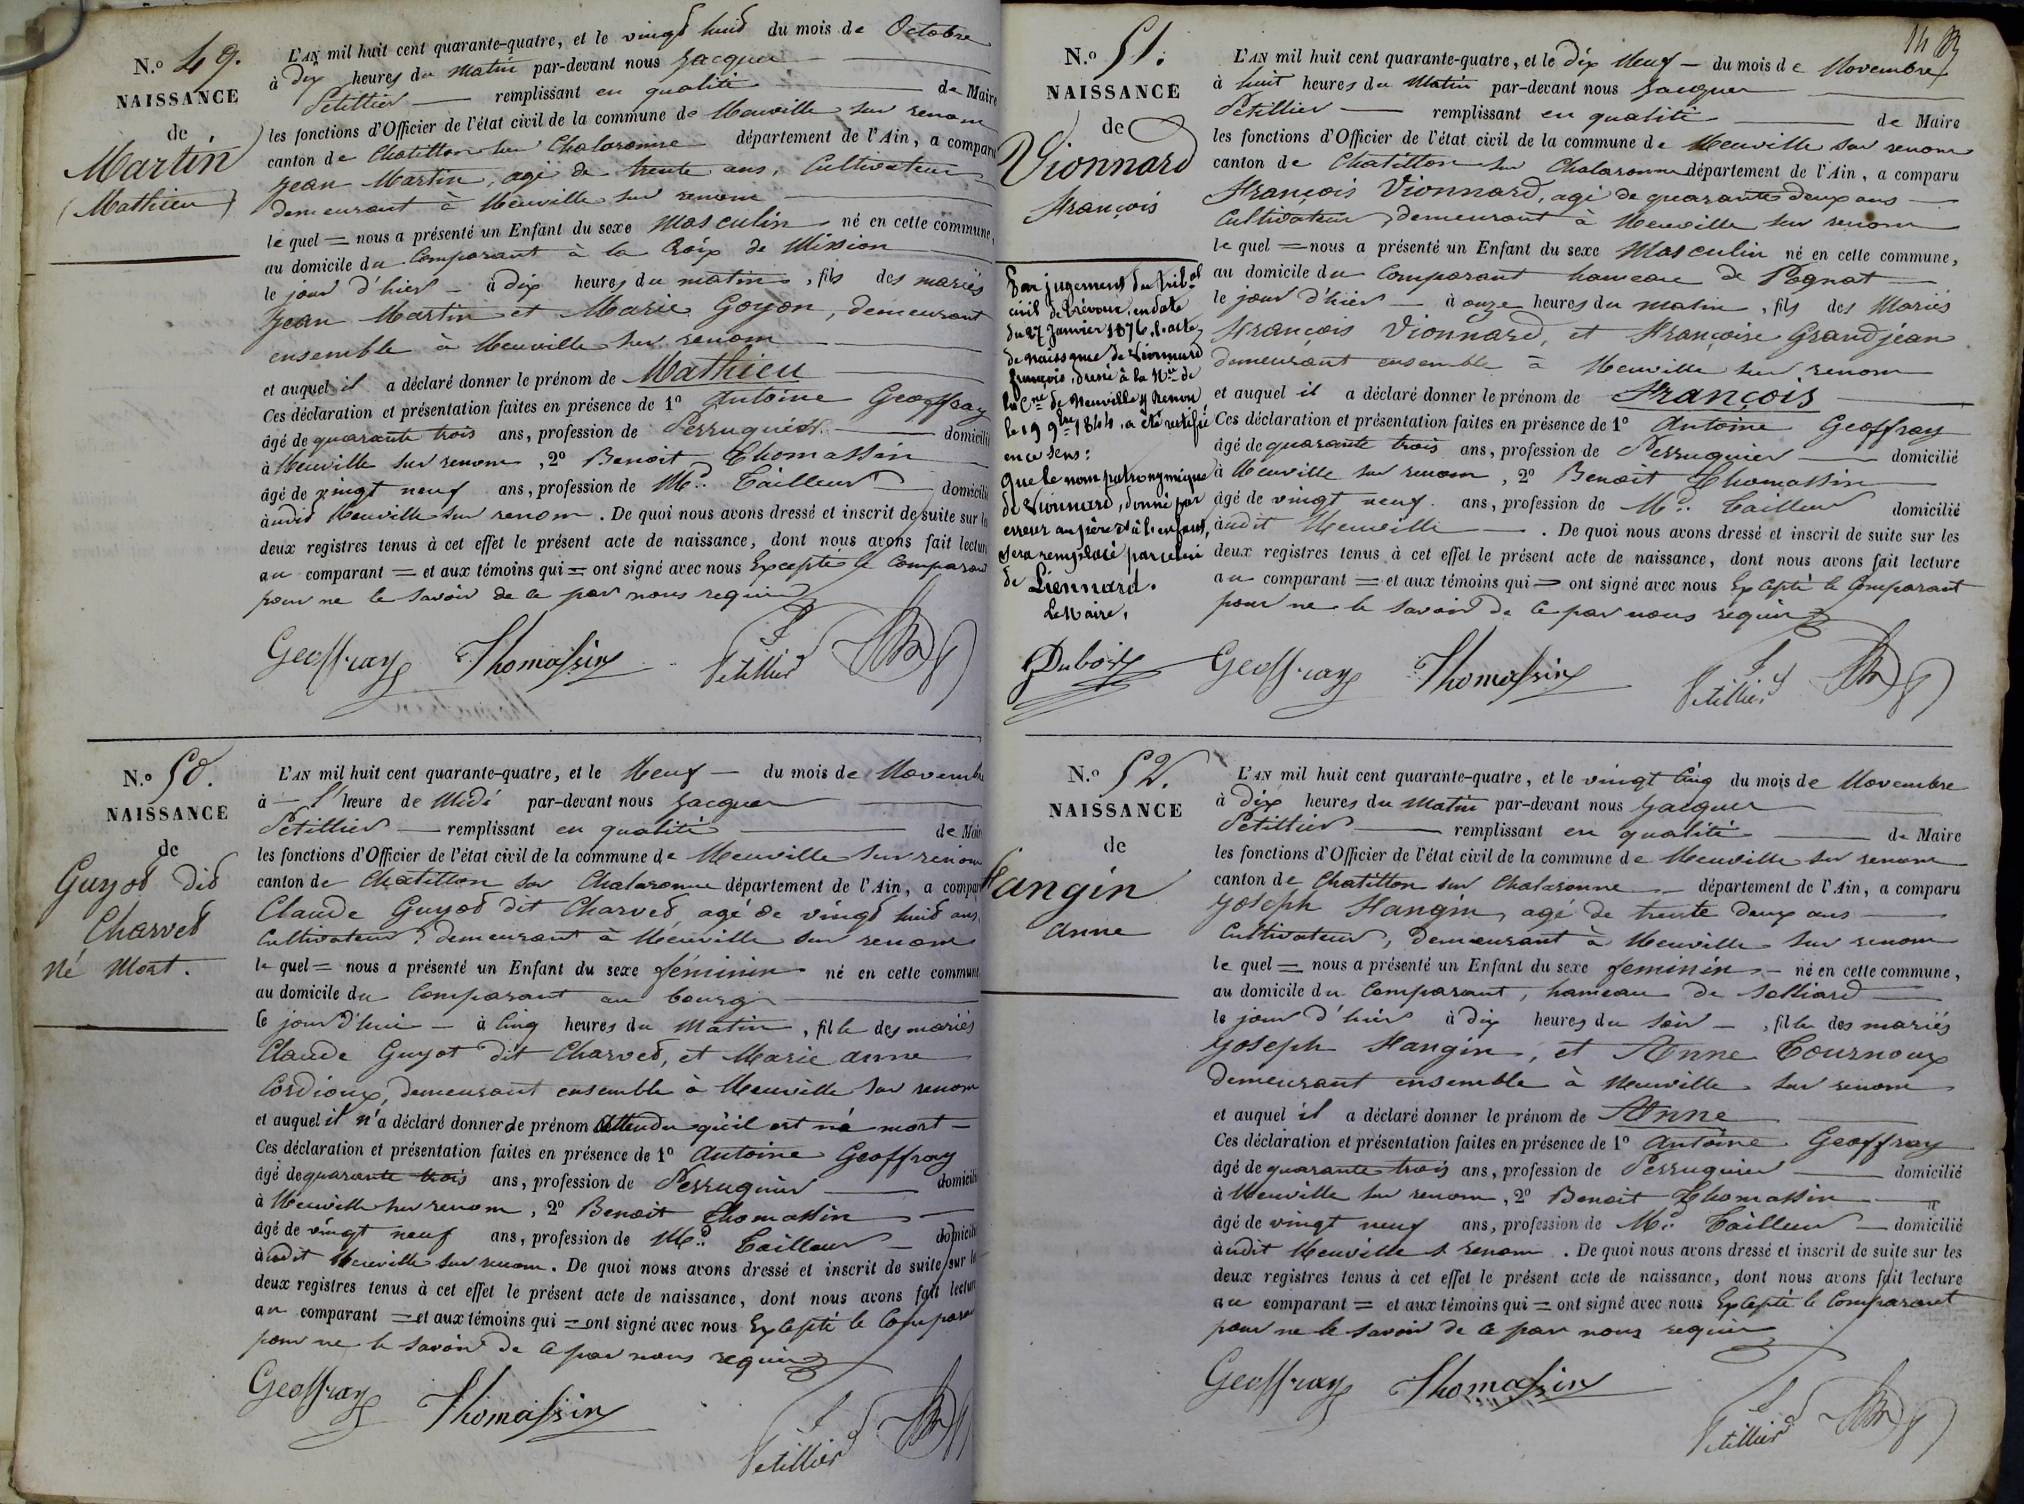 N.o 49.
NAISSANCE
de
Martin
(Mathieu)
L'AN mil huit cent quarante-quatre, et le vingt huit du mois de Octobre
à dix heures du matin par-devant nous Jacques
Petillier remplissant en qualité de Maire
les fonctions d'Officier de l'état civil de la commune de Neuville sur renom
canton de Chatillon sur Chalaronne département de l'Ain, a comparu
Jean Martin, agé de trente ans, Cultivateur
demeurant à Neuville sur renom
le quel = nous a présenté un Enfant du sexe Masculin né en cette commune,
au domicile du Comparant à la Croix de Mission
le jour d'hier - à dix heures du matin, fils des mariés
Jean Martin et Marie Goyon, demeurant
ensemble à Neuville sur renom
et auquel il a déclaré donner le prénom de Mathieu
Ces déclaration et présentation faites en présence de 1o Antoine Geoffray
âgé de quarante trois ans, profession de Perruquier domicilié
à Neuville sur renom, 2o Benoit Thomassin
âgé de vingt neuf ans, profession de Md. Tailleur domicilié
àudit Neuville sur renom. De quoi nous avons dressé et inscrit de suite sur les
deux registres tenus à cet effet le présent acte de naissance, dont nous avons fait lecture
au comparant = et aux témoins qui = ont signé avec nous Excepté le Comparant
pour ne le savoir de ce par nous requis
Geoffray Thomassin Petillier
N.o 50.
NAISSANCE
de
Guyot dit
Charvet
né mort.
L'AN mil huit cent quarante-quatre, et le Neuf - du mois de Novembre
à - l'heure de Midi par-devant nous Jacques
Petillier remplissant en qualité de Maire
les fonctions d'Officier de l'état civil de la commune de Neuville sur renom
canton de Chatillon sur Chalaronne département de l'Ain, a comparu
Claude Guyot dit Charvet, agé de vingt huit ans,
Cultivateur, demeurant à Neuville sur renom
le quel = nous a présenté un Enfant du sexe féminin né en cette commune
au domicile du Comparant au bourg
le jour d'hui - à cinq heures du Matin, fille des mariés
Claude Guyot dit Charvet, et Marie anne
Cordioux, demeurant ensemble à Neuville sur renom
et auquel il n'a déclaré donner de prénom attendu qu'il est né mort -
Ces déclaration et présentation faites en présence de 1o Antoine Geoffray
âgé de quarante trois ans, profession de Perruquier domicilié
à Neuville sur renom, 2o Benoit Thomassin
âgé de vingt neuf ans, profession de Md. Tailleur domicilié
àudit Neuville sur renom. De quoi nous avons dressé et inscrit de suite sur les
deux registres tenus à cet effet le présent acte de naissance, dont nous avons fait lecture
au comparant = et aux témoins qui = ont signé avec nous Excepté le Comparant
pour ne le savoir de ce par nous requis
Geoffray Thomassin Petillier
N.o 51.
NAISSANCE
de
Vionnard
François
Par jugement du tribal
civil de Trévoux, en date
du 27 Janvier 1876, l'acte
de naissance de Vionnard
françois, dressé à la Mie de
la Cne de Neuville s/ Renon
le 19 9bre 1844, a été rectifié
en ce sens:
Que le nom patronymique
de Vionnard, donné par
erreur au père et à l'enfant,
sera remplacé par celui
de Liennard.
Le Maire,
Dubois
L'AN mil huit cent quarante-quatre, et le dix Neuf - du mois de Novembre
à huit heures du Matin par-devant nous Jacques
Petillier remplissant en qualité de Maire
les fonctions d'Officier de l'état civil de la commune de Neuville sur renom
canton de Chatillon sur Chalaronne département de l'Ain, a comparu
François Vionnard, agé de quarante deux ans
Cultivateur, demeurant à Neuville sur renom
le quel = nous a présenté un Enfant du sexe Masculin né en cette commune,
au domicile du Comparant hameau de Pognat
le jour d'hier - à onze heures du matin, fils des Mariés
François Vionnard, et Françoise Grandjean
demeurant ensemble à Neuville sur renom
et auquel il a déclaré donner le prénom de François
Ces déclaration et présentation faites en présence de 1o Antoine Geoffray
âgé de quarante trois ans, profession de Perruquier domicilié
à Neuville sur renom, 2o Benoit Thomassin
âgé de vingt neuf ans, profession de Md. Tailleur domicilié
àudit Neuville. De quoi nous avons dressé et inscrit de suite sur les
deux registres tenus à cet effet le présent acte de naissance, dont nous avons fait lecture
au comparant = et aux témoins qui = ont signé avec nous Excepté le Comparant
pour ne le savoir de ce par nous requis
Geoffray Thomassin Petillier
N.o 52.
NAISSANCE
de
Fangin
Anne
L'AN mil huit cent quarante-quatre, et le vingt Cinq du mois de Novembre
à dix heures du Matin par-devant nous Jacques
Petillier remplissant en qualité de Maire
les fonctions d'Officier de l'état civil de la commune de Neuville sur renom
canton de Chatillon sur Chalaronne département de l'Ain, a comparu
Joseph Fangin, agé de trente deux ans
Cultivateur, demeurant à Neuville sur renom
le quel = nous a présenté un Enfant du sexe feminin - né en cette commune,
au domicile du Comparant, hameau de Solliard
le jour d'hier à dix heures du soir -, fille des mariés
Joseph Fangin, et Anne Tournoux
demeurant ensemble à Neuville sur renom
et auquel il a déclaré donner le prénom de Anne
Ces déclaration et présentation faites en présence de 1o Antoine Geoffray
âgé de quarante trois ans, profession de Perruquier domicilié
à Neuville sur renom, 2o Benoit Thomassin
âgé de vingt neuf ans, profession de Md. Tailleur domicilié
àudit Neuville s. renom. De quoi nous avons dressé et inscrit de suite sur les
deux registres tenus à cet effet le présent acte de naissance, dont nous avons fait lecture
au comparant = et aux témoins qui = ont signé avec nous Excepté le Comparant
pour ne le savoir de ce par nous requis
Geoffray Thomassin Petillier